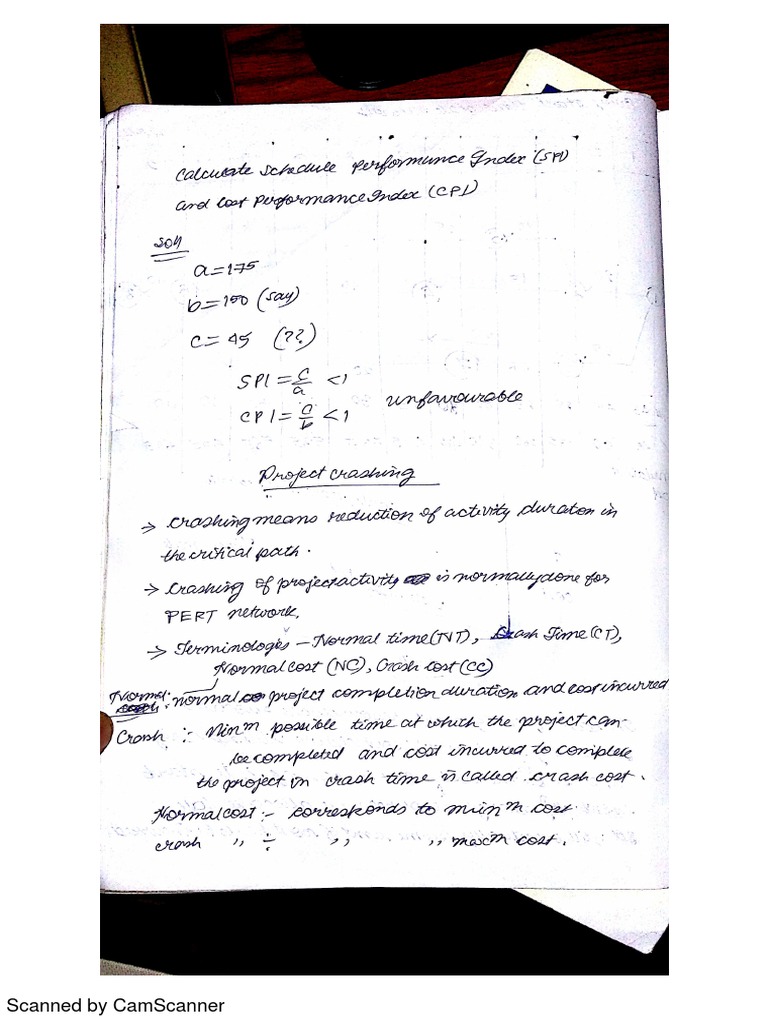 Calculate Schedule Performance Index (SPI)
and Cost Performance Index (CPI)
Soln
a=175
b=100 (say)
c= 45 (??)
SPI = c/a <1
CPI = c/b <1 unfavourable
Project crashing
→ Crashing means reduction of activity duration in
the critical path.
→ Crashing of project activity is normally done for
PERT network.
→ Terminologies - Normal time (NT), Crash Time (CT),
Normal Cost (NC), Crash Cost (CC)
Normal : normal project completion duration and cost incurred
Crash :- Minm possible time at which the project can
be completed and cost incurred to complete
the project in crash time is called crash cost.
Normal cost :- corresponds to minm cost
crash ,, ÷ ,, ,, maxm cost.
Scanned by CamScanner